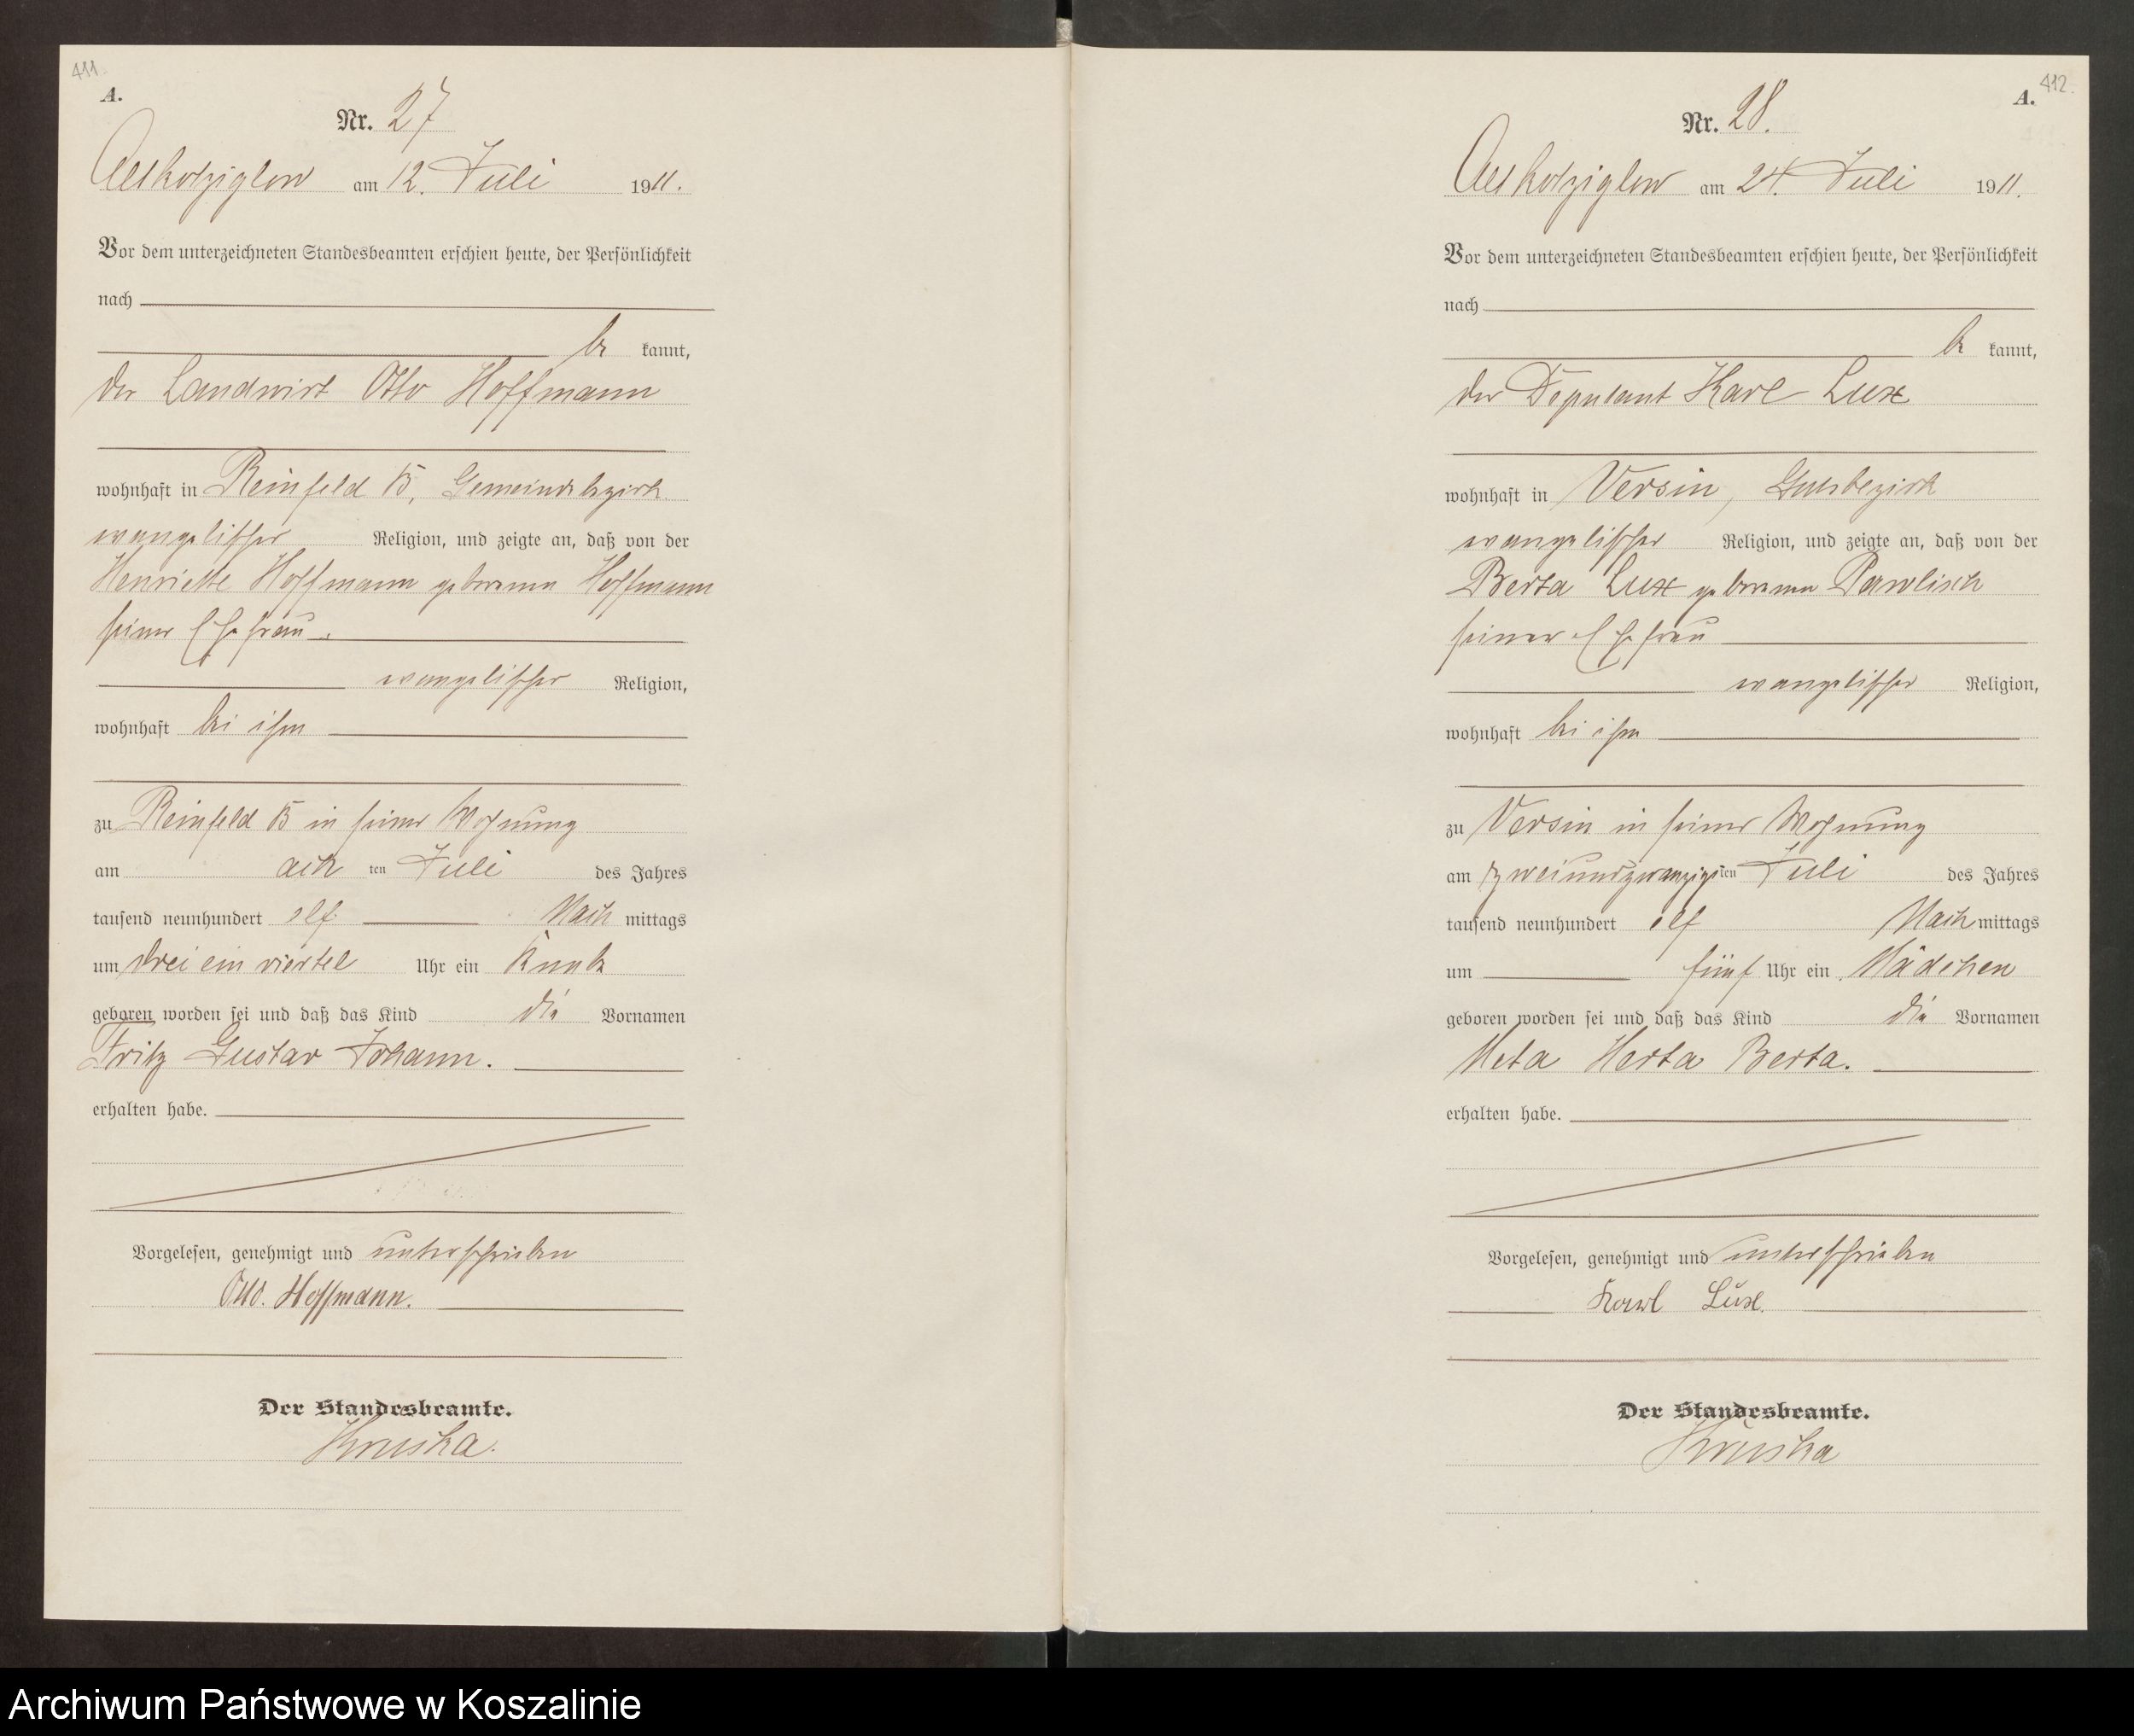 411.
A.
Nr. 27
Altkolziglow am 12. Juli 1911.
Vor dem unterzeichneten Standesbeamten erschien heute, der Persönlichkeit
nach
be kannt,
der Landwirt Otto Hoffmann
wohnhaft in Reinfeld B, Gemeindebezirk
evangelischer Religion, und zeigte an, daß von der
Henriette Hoffmann geborenen Hoffmann
seiner Ehefrau
evangelischer Religion,
wohnhaft bei ihm
zu Reinfeld B in seiner Wohnung
am ach ten Juli des Jahres
tausend neunhundert elf Nach mittags
um drei ein viertel Uhr ein Knabe
geboren worden sei und daß das Kind die Vornamen
Fritz Gustav Johann.
erhalten habe.
Vorgelesen, genehmigt und unterschrieben
Otto. Hoffmann.
Der Standesbeamte.
Kruska.
412.
A.
Nr. 28.
Altkolziglow am 24. Juli 1911.
Vor dem unterzeichneten Standesbeamten erschien heute, der Persönlichkeit
nach
be kannt,
der Deputant Karl Lux
wohnhaft in Versin, Gutsbezirk
evangelischer Religion, und zeigte an, daß von der
Berta Lux geborenen Pawlisch
seiner Ehefrau
evangelischer Religion,
wohnhaft bei ihm
zu Versin in seiner Wohnung
am zweiundzwanzigsten Juli des Jahres
tausend neunhundert elf Nach mittags
um fünf Uhr ein Mädchen
geboren worden sei und daß das Kind die Vornamen
Meta Herta Berta.
erhalten habe.
Vorgelesen, genehmigt und unterschrieben
Karl Lux.
Der Standesbeamte.
Kruska
Archiwum Państwowe w Koszalinie